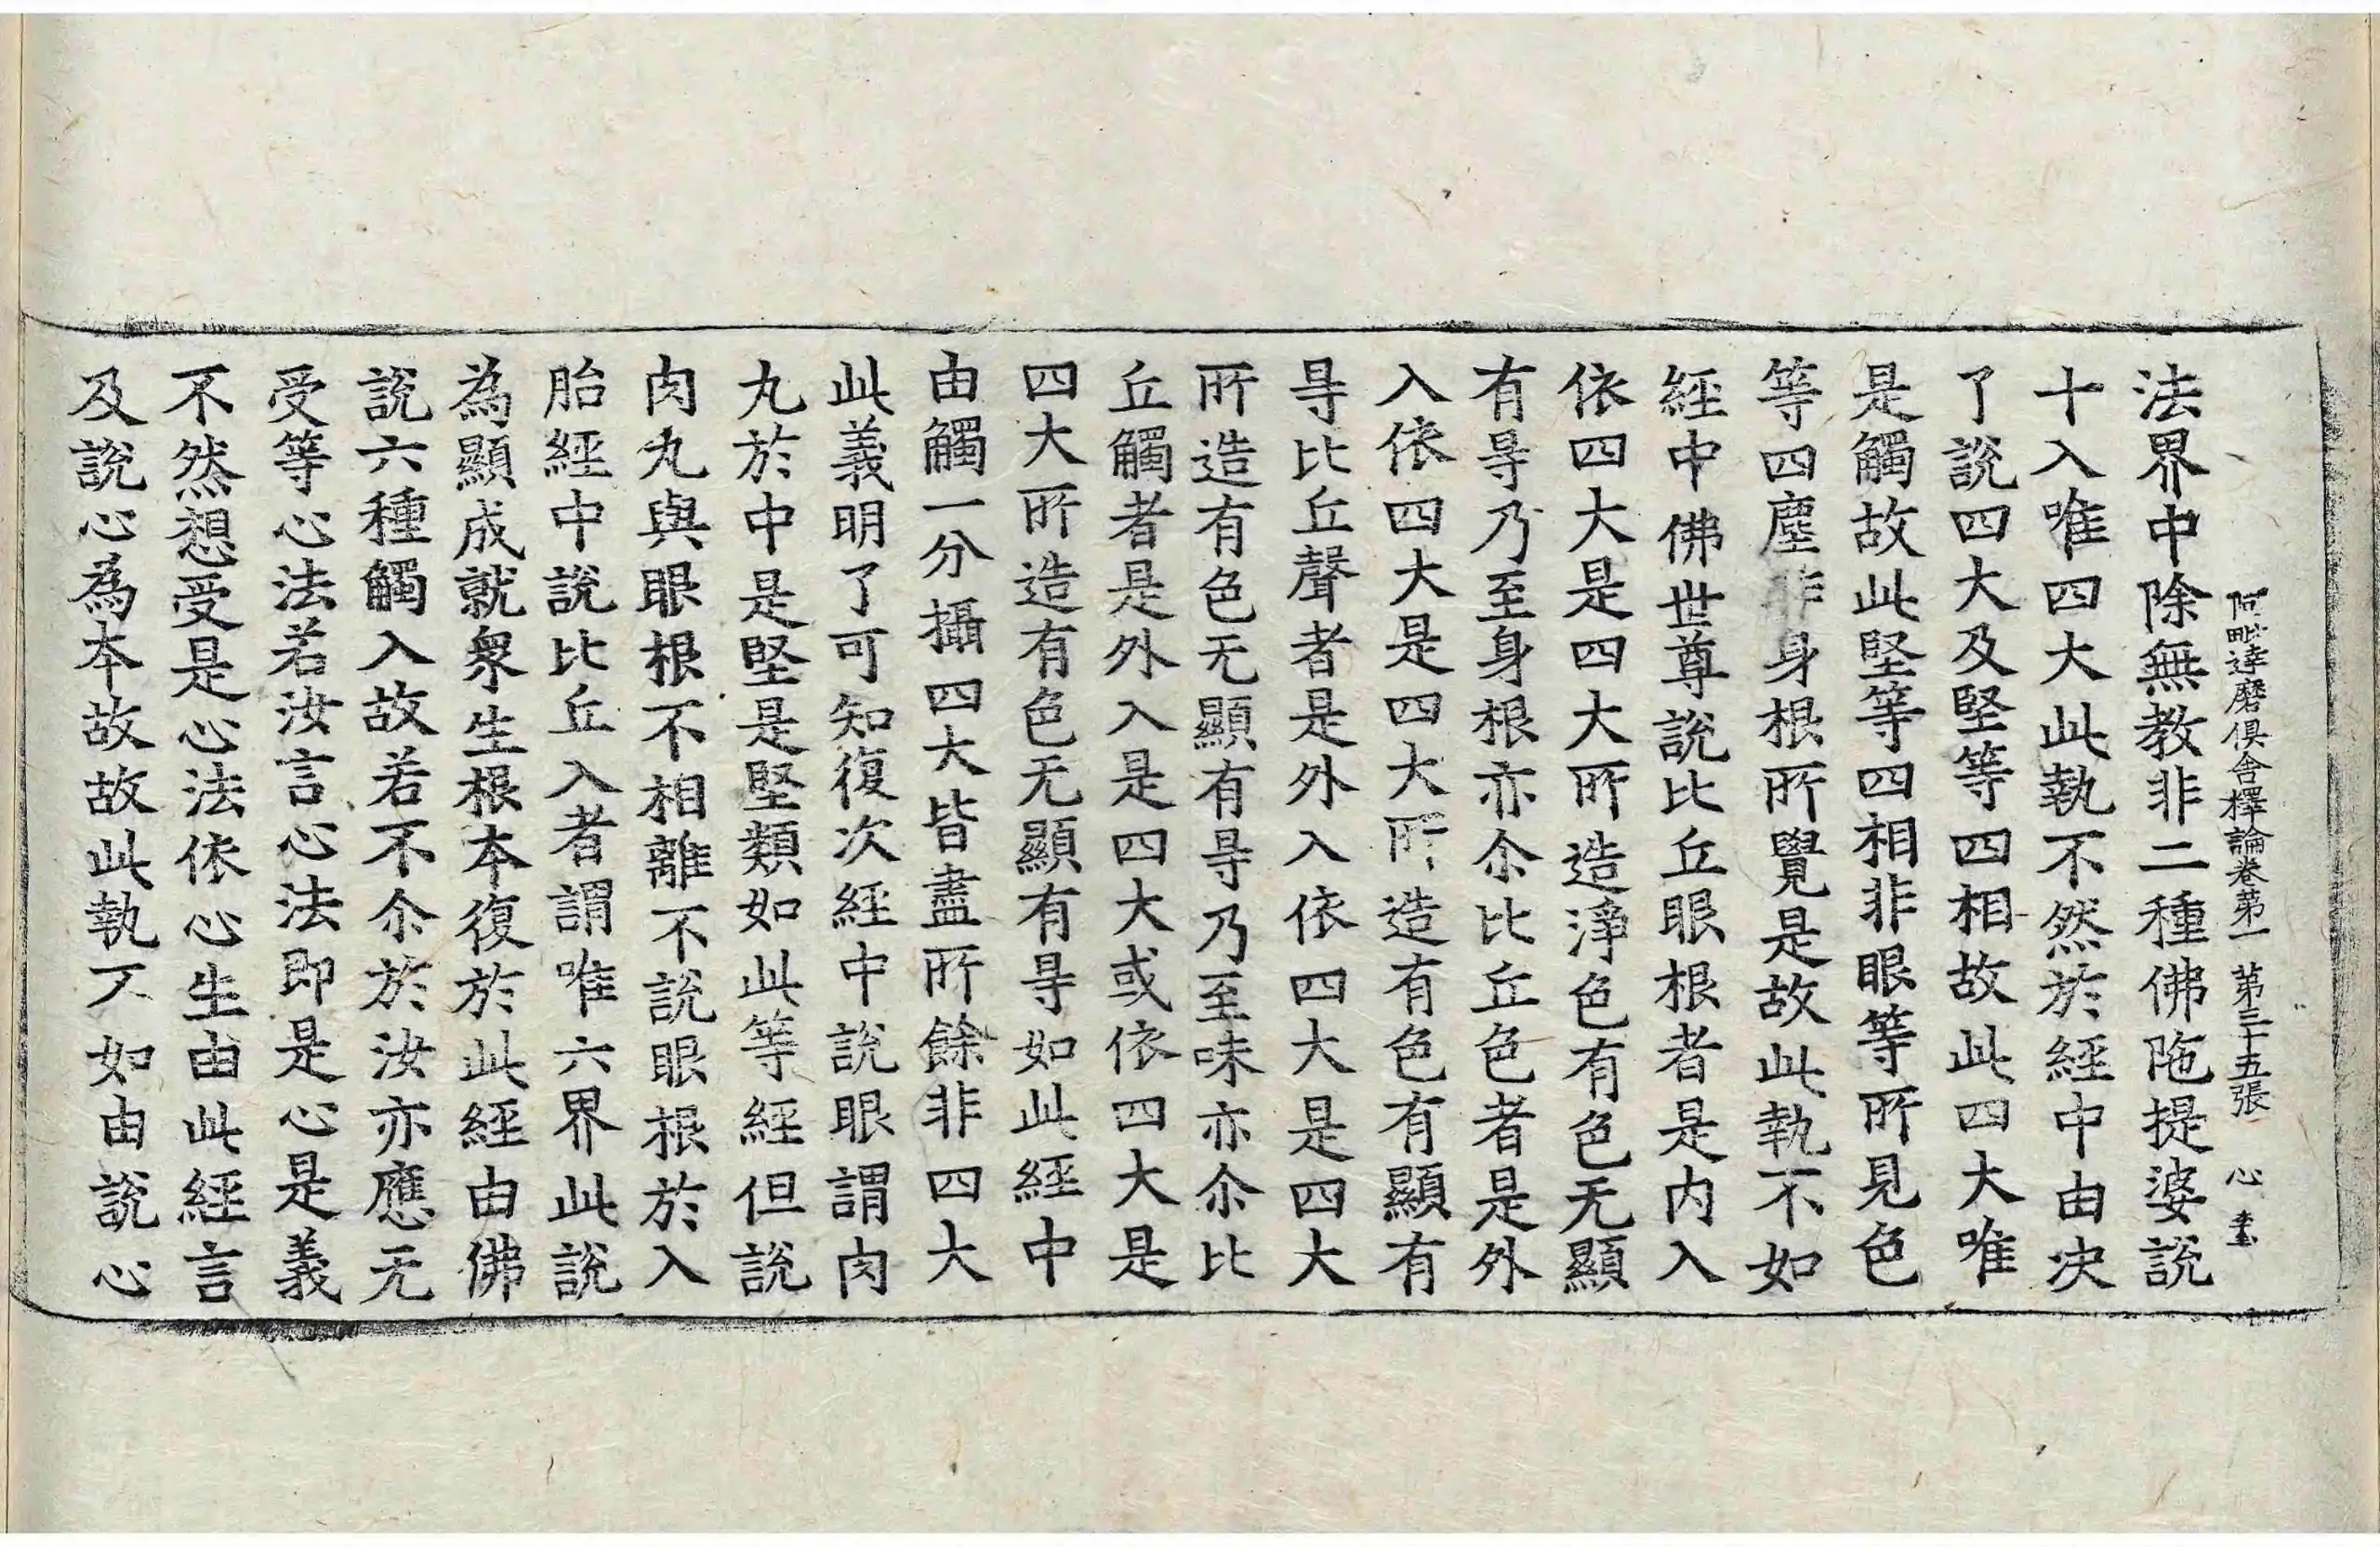 阿毗達磨俱舍釋論卷第一 第三十五張 心
法界中除無教非二種佛陁提婆說
十入唯四大此執不然於經中由決
了說四大及堅等四相故此四大唯
是觸故此堅等四相非眼等所見色
等四塵非身根所覺是故此執不如
經中佛世尊說比丘眼根者是內入
依四大是四大所造淨色有色无顯
有㝵乃至身根亦尒比丘色者是外
入依四大是四大所造有色有顯有
㝵比丘聲者是外入依四大是四大
所造有色无顯有㝵乃至味亦尒比
丘觸者是外入是四大或依四大是
四大所造有色无顯有㝵如此經中
由觸一分攝四大皆盡所餘非四大
此義明了可知復次經中說眼謂肉
丸於中是堅是堅類如此等經但說
肉丸與眼根不相離不說眼根於入
胎經中說比丘入者謂唯六界此說
為顯成就衆生根本復於此經由佛
說六種觸入故若不尒於汝亦應无
受等心法若汝言心法即是心是義
不然想受是心法依心生由此經言
及說心為本故故此執不如由說心